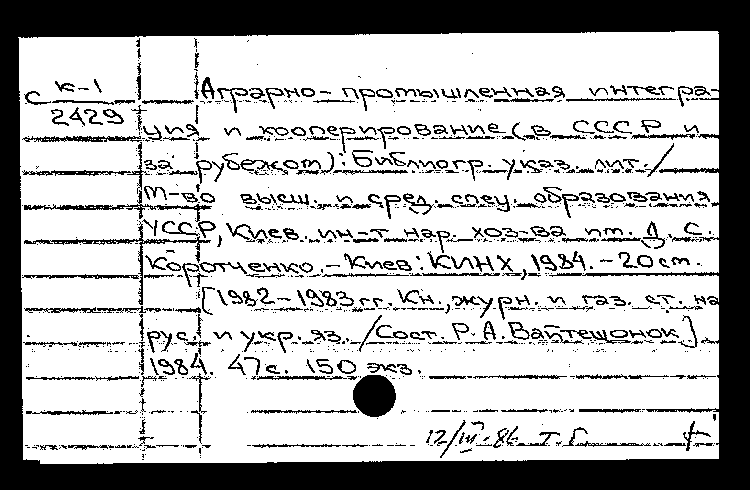 с к-1
2429
Аграрно-промышленная интегра-
ция и кооперирование (в СССР и
за рубежом): Библиогр. указ. лит. /
М-во высш. и сред. спец. образования
УССР, Киев. ин-т нар. хоз-ва им. Д. С.
Коротченко. - Киев: КИНХ, 1984. - 20 см.
[1982-1983 гг. Кн., журн. и газ. ст. на
рус. и укр. яз. / Сост. Р. А. Вайтешонок].
1984. 47 с. 150 экз.
12/III-86 Т. Г.